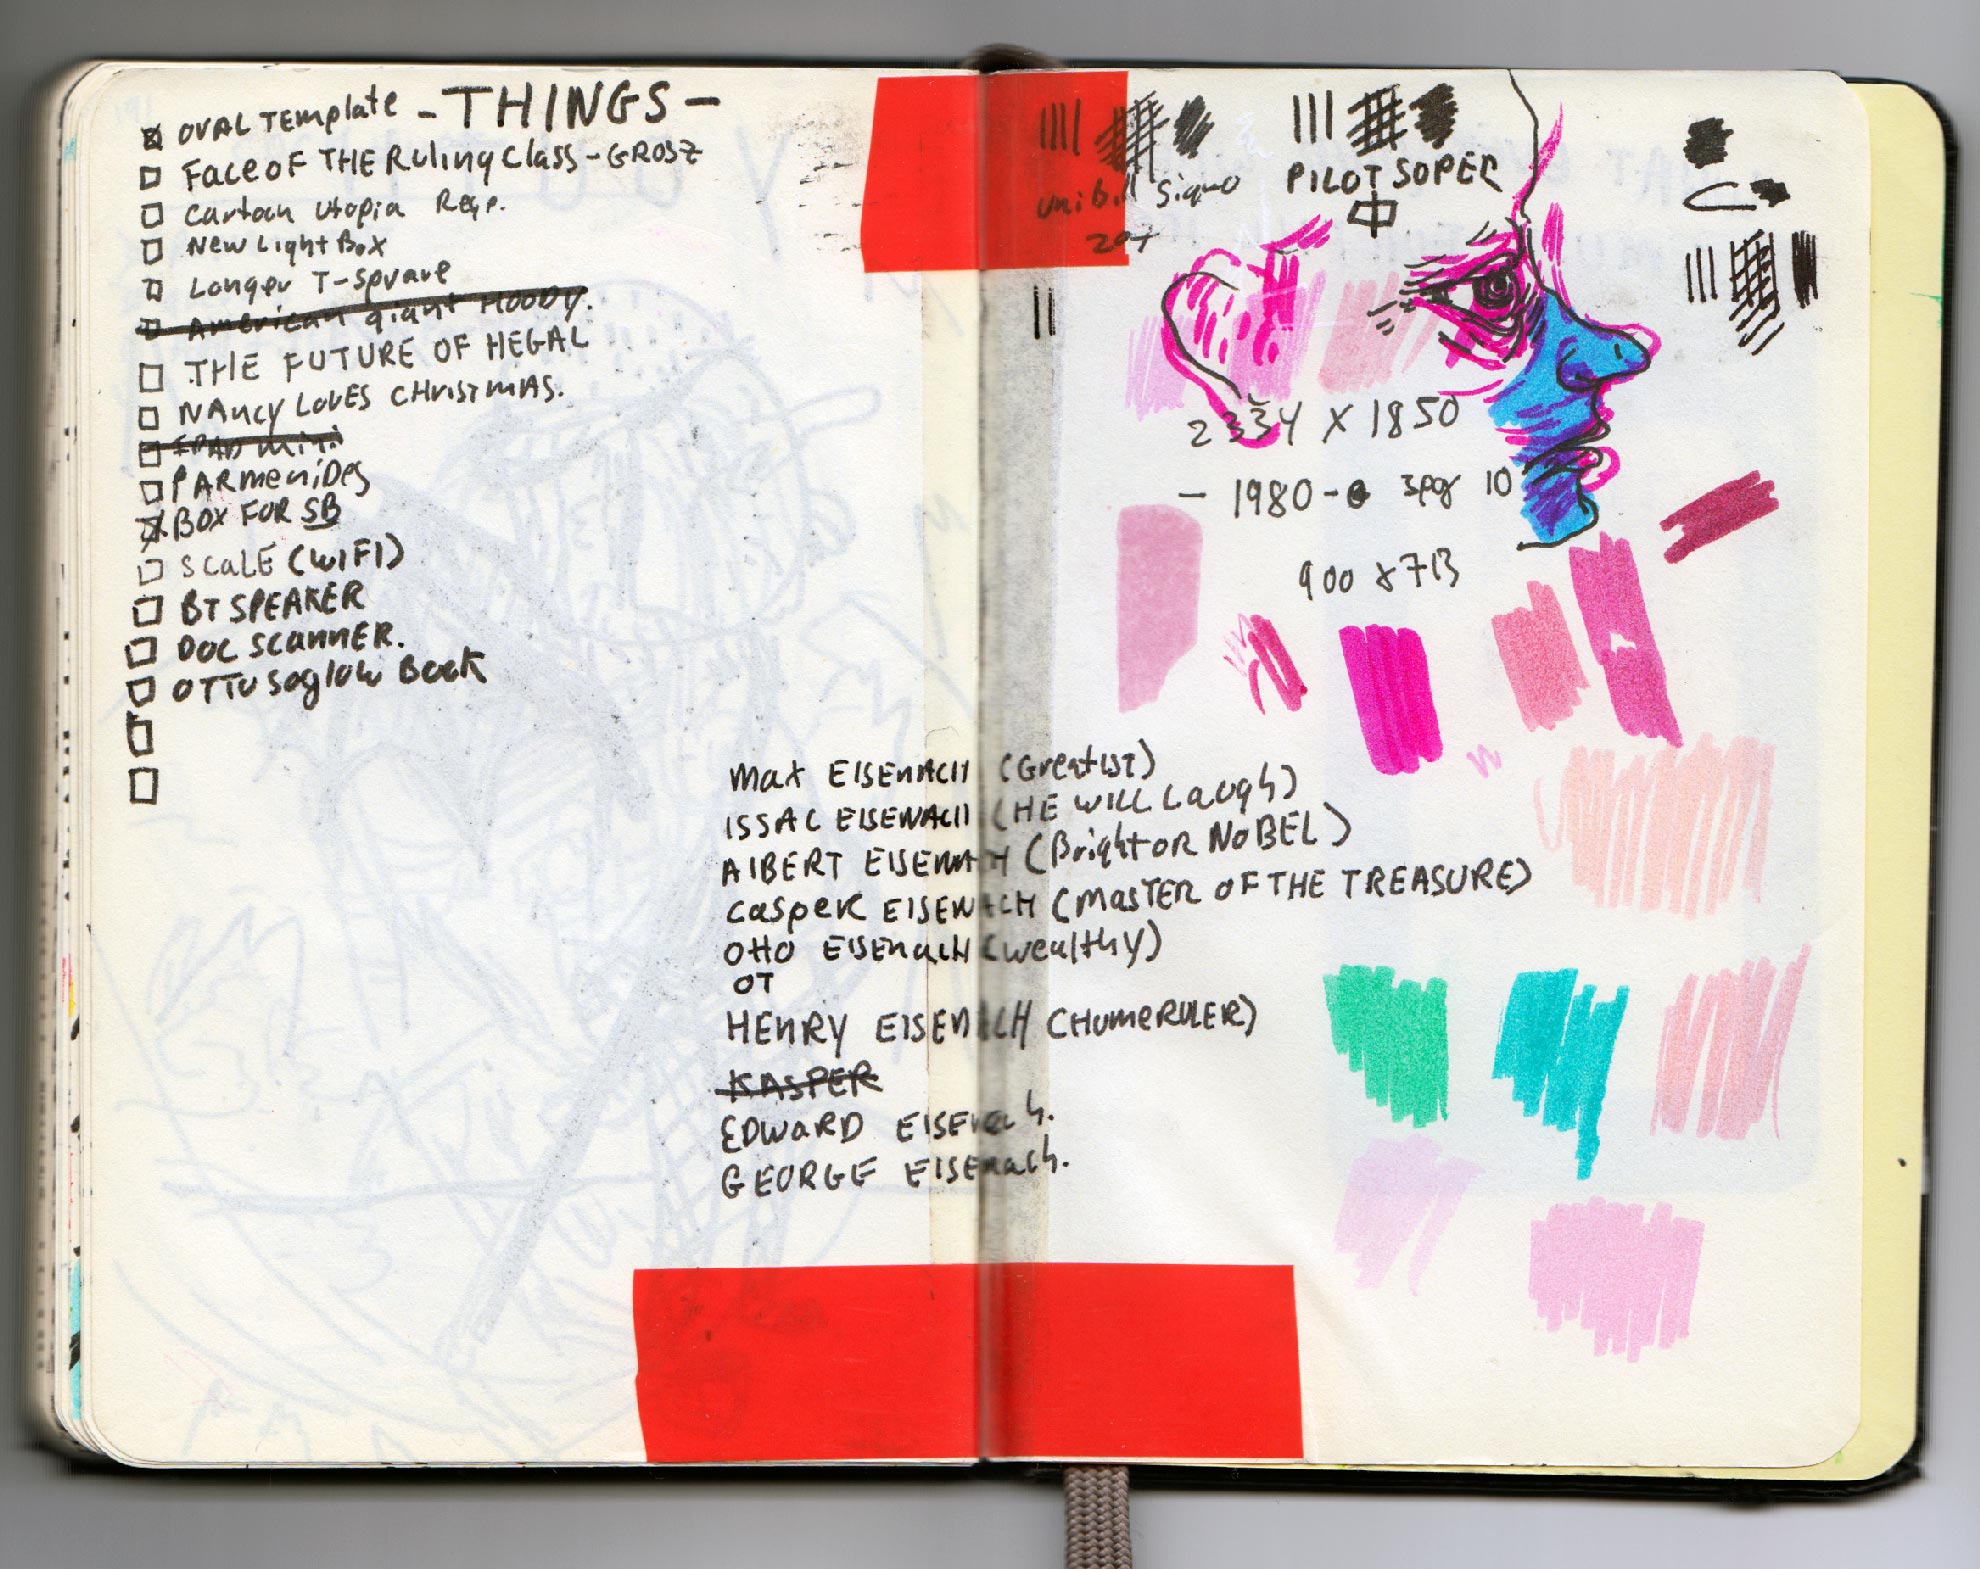 - THINGS -
OVAL Template
Face OF THE Ruling Class - GROSZ
Cartoon Utopia Regp.
New Light Box
Longer T-Square
American giant Hoody.
THE FUTURE OF HEGAL
NAncy LOVES CHRISTMAS.
IPAD mini
PARmeniDes
BOX FOR SB
SCALE (WIFI)
BT SPEAKER
DOC Scanner.
OTTO Soglow Book
uniball Signo
207
PILOT SOPER
2334 X 1850
- 1980 -
10
900 X 713
Max EISENACH (Greatist)
ISSAC EISENACH (HE WILL Laugh)
AlBERT EISENACH (Bright OR NOBEL)
Casper EISENACH (MASTER OF THE TREASURE)
Otto EISENach (wealthy)
OT
HENRY EISENACH (HOMERULER)
KASPER
EDWARD EISENach.
GEORGE EISENach.